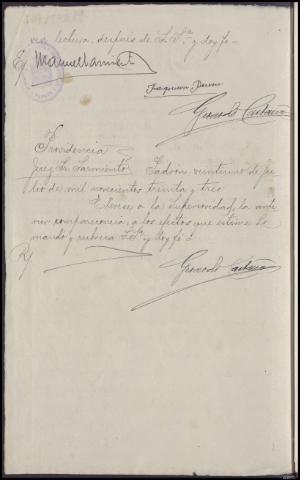 via lectura, después de S. Sª y doy fe =
E/ Manuel Sarmiento
Joaquin
Gerardo
Providencia
Juez Sr. Sarmiento. Padrón veintiuno de Ju-
lio de mil novecientos treinta y tres.
Elévese a la Superioridad, la ante-
rior comparecencia, a los efectos que estime. Lo
mandó y rubrica S. Sª y doy fé =
R/
Gerardo